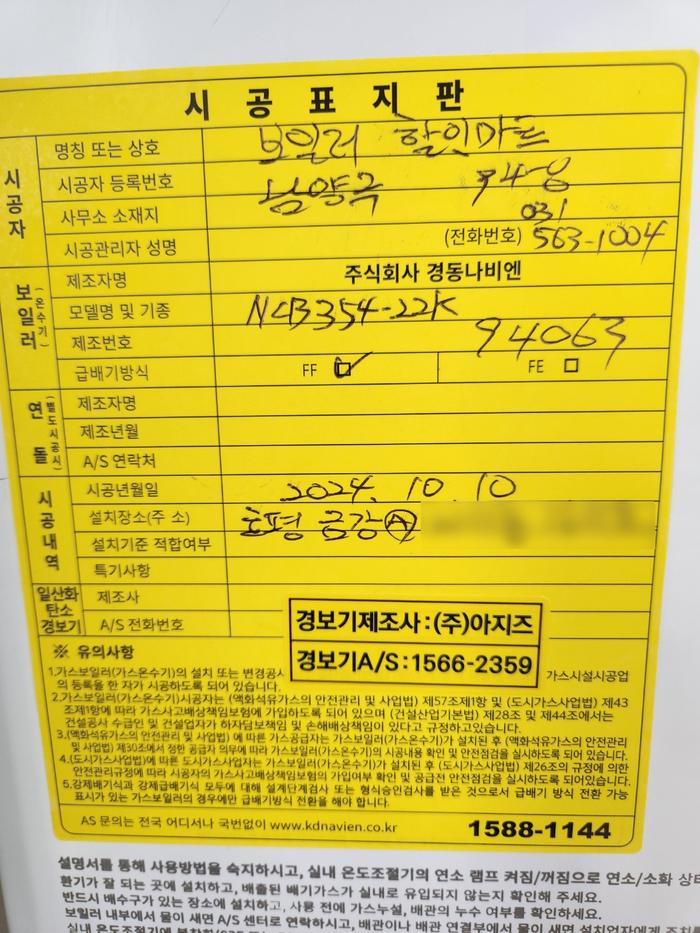 시 공 표 지 판
시공자
명칭 또는 상호 보일러 할인마트
시공자 등록번호 남양주 94-8
사무소 소재지 031
시공관리자 성명 (전화번호) 563-1004
보일러 (온수기)
제조자명 주식회사 경동나비엔
모델명 및 기종 NCB354-22K
제조번호 94063
급배기방식 FF ☑ FE □
연돌 (별도시공시)
제조자명
제조년월
A/S 연락처
시공내역
시공년월일 2024. 10. 10
설치장소(주 소) 호평 금강 Ⓐ
설치기준 적합여부
특기사항
일산화탄소 경보기
제조사 경보기제조사:(주)아지즈
A/S 전화번호 경보기A/S:1566-2359
※ 유의사항
1.가스보일러(가스온수기)의 설치 또는 변경공사 가스시설시공업
의 등록을 한 자가 시공하도록 되어 있습니다.
2.가스보일러(가스온수기)시공자는 (액화석유가스의 안전관리 및 사업법) 제57조제1항 및 (도시가스사업법) 제43
조제1항에 따라 가스사고배상책임보험에 가입하도록 되어 있으며 (건설산업기본법) 제28조 및 제44조에서는
건설공사 수급인 및 건설업자가 하자담보책임 및 손해배상책임이 있다고 규정하고있습니다.
3.(액화석유가스의 안전관리 및 사업법) 에 따른 가스공급자는 가스보일러(가스온수기)가 설치된 후 (액화석유가스의 안전관리
및 사업법) 제30조에서 정한 공급자 의무에 따라 가스보일러(가스온수기)의 시공내용 확인 및 안전점검을 실시하도록 되어 있습니다.
4.(도시가스사업법)에 따른 도시가스사업자는 가스보일러(가스온수기)가 설치된 후 (도시가스사업법) 제26조의 규정에 의한
안전관리규정에 따라 시공자의 가스사고배상책임보험의 가입여부 확인 및 공급전 안전점검을 실시하도록 되어있습니다.
5.강제배기식과 강제급배기식 모두에 대해 설계단계검사 또는 형식승인검사를 받은 것으로서 급배기 방식 전환 가능
표시가 있는 가스보일러의 경우에만 급배기방식 전환을 해야 합니다.
AS 문의는 전국 어디서나 국번없이 www.kdnavien.co.kr 1588-1144
설명서를 통해 사용방법을 숙지하시고, 실내 온도조절기의 연소 램프 켜짐/꺼짐으로 연소/소화 상태
환기가 잘 되는 곳에 설치하고, 배출된 배기가스가 실내로 유입되지 않는지 확인해 주세요.
반드시 배수구가 있는 장소에 설치하고, 사용 전에 가스누설, 배관의 누수 여부를 확인하세요.
보일러 내부에서 물이 새면 A/S 센터로 연락하시고, 배관이나 배관 연결부에서 물이 새면 설치업자에게 조치를